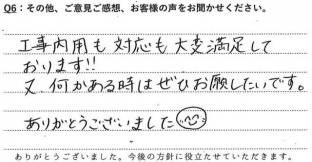 Q6：その他、ご意見ご感想、お客様の声をお聞かせください。
工事内用も対応も大変満足して
おります!!
又、何かある時はぜひお願したいです。
ありがとうございました
ありがとうございました。今後の方針に役立たせていただきます。